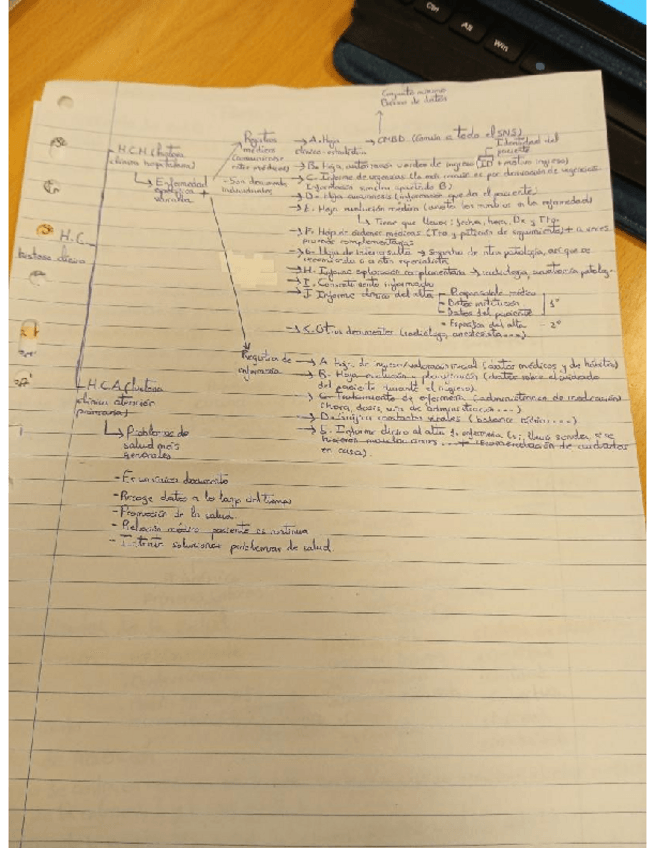 Ctrl
Alt
Win
Conjunto mínimo
Básico de datos
H.C
historia clínica
H.C.H (historia
clínica hospitalaria)
→ Enfermedad
específica
Registros
médicos
entre médicos)
- Son documentos
individuales
→ A. Hoja
clínico-estadística
→ CMBD (Común a todo el SNS)
Identidad del
paciente
→ B. Hoja autorización de ingreso (ID + motivo ingreso)
→ C. Informe de urgencias (la más común es por derivación de urgencias.
apartado B)
→ D. Hoja anamnesis (información que da el paciente)
→ E. Hoja evolución médica (anota los cambios en la enfermedad)
→ Tiene que llevar: fecha, hora, Dx y Tto.
→ F. Hoja de órdenes médicas (Tto y pautas de seguimiento) + a veces
pruebas complementarias
→ G. Hoja de interconsulta → Sospecha de otra patología, así que se
a otro especialista
→ H. Informe exploración complementaria → radiología, anatomía patolog.
→ I. Consentimiento informado
→ J. Informe clínico del alta
- Responsable médico
- Datos institución
- Datos del paciente
1º
- Específicos del alta - 2º
→ K. Otros documentos (radiólogo, anestesista....)
Registros de
enfermería
→ A. Hoja de ingreso/valoración inicial (datos médicos y de hábitos)
→ B. Hoja evolución y planificación (datos sobre el cuidado
del paciente durante el ingreso).
→ C. Tratamiento de enfermería (administración de medicación
(hora, dosis, vía de administración....)
→ D. Gráficas constantes vitales (balance hídrico.....)
→ E. Informe clínico al alta de enfermería (si lleva sondas, si se
+ recomendación de cuidados
en casa).
H.C.A.P (historia
clínica atención
primaria)
→ Problemas de
salud más
generales
- Es un único documento
- Recoge datos a lo largo del tiempo
- Promoción de la salud
- Relación médico paciente es continua
- Intenta solucionar problemas de salud.